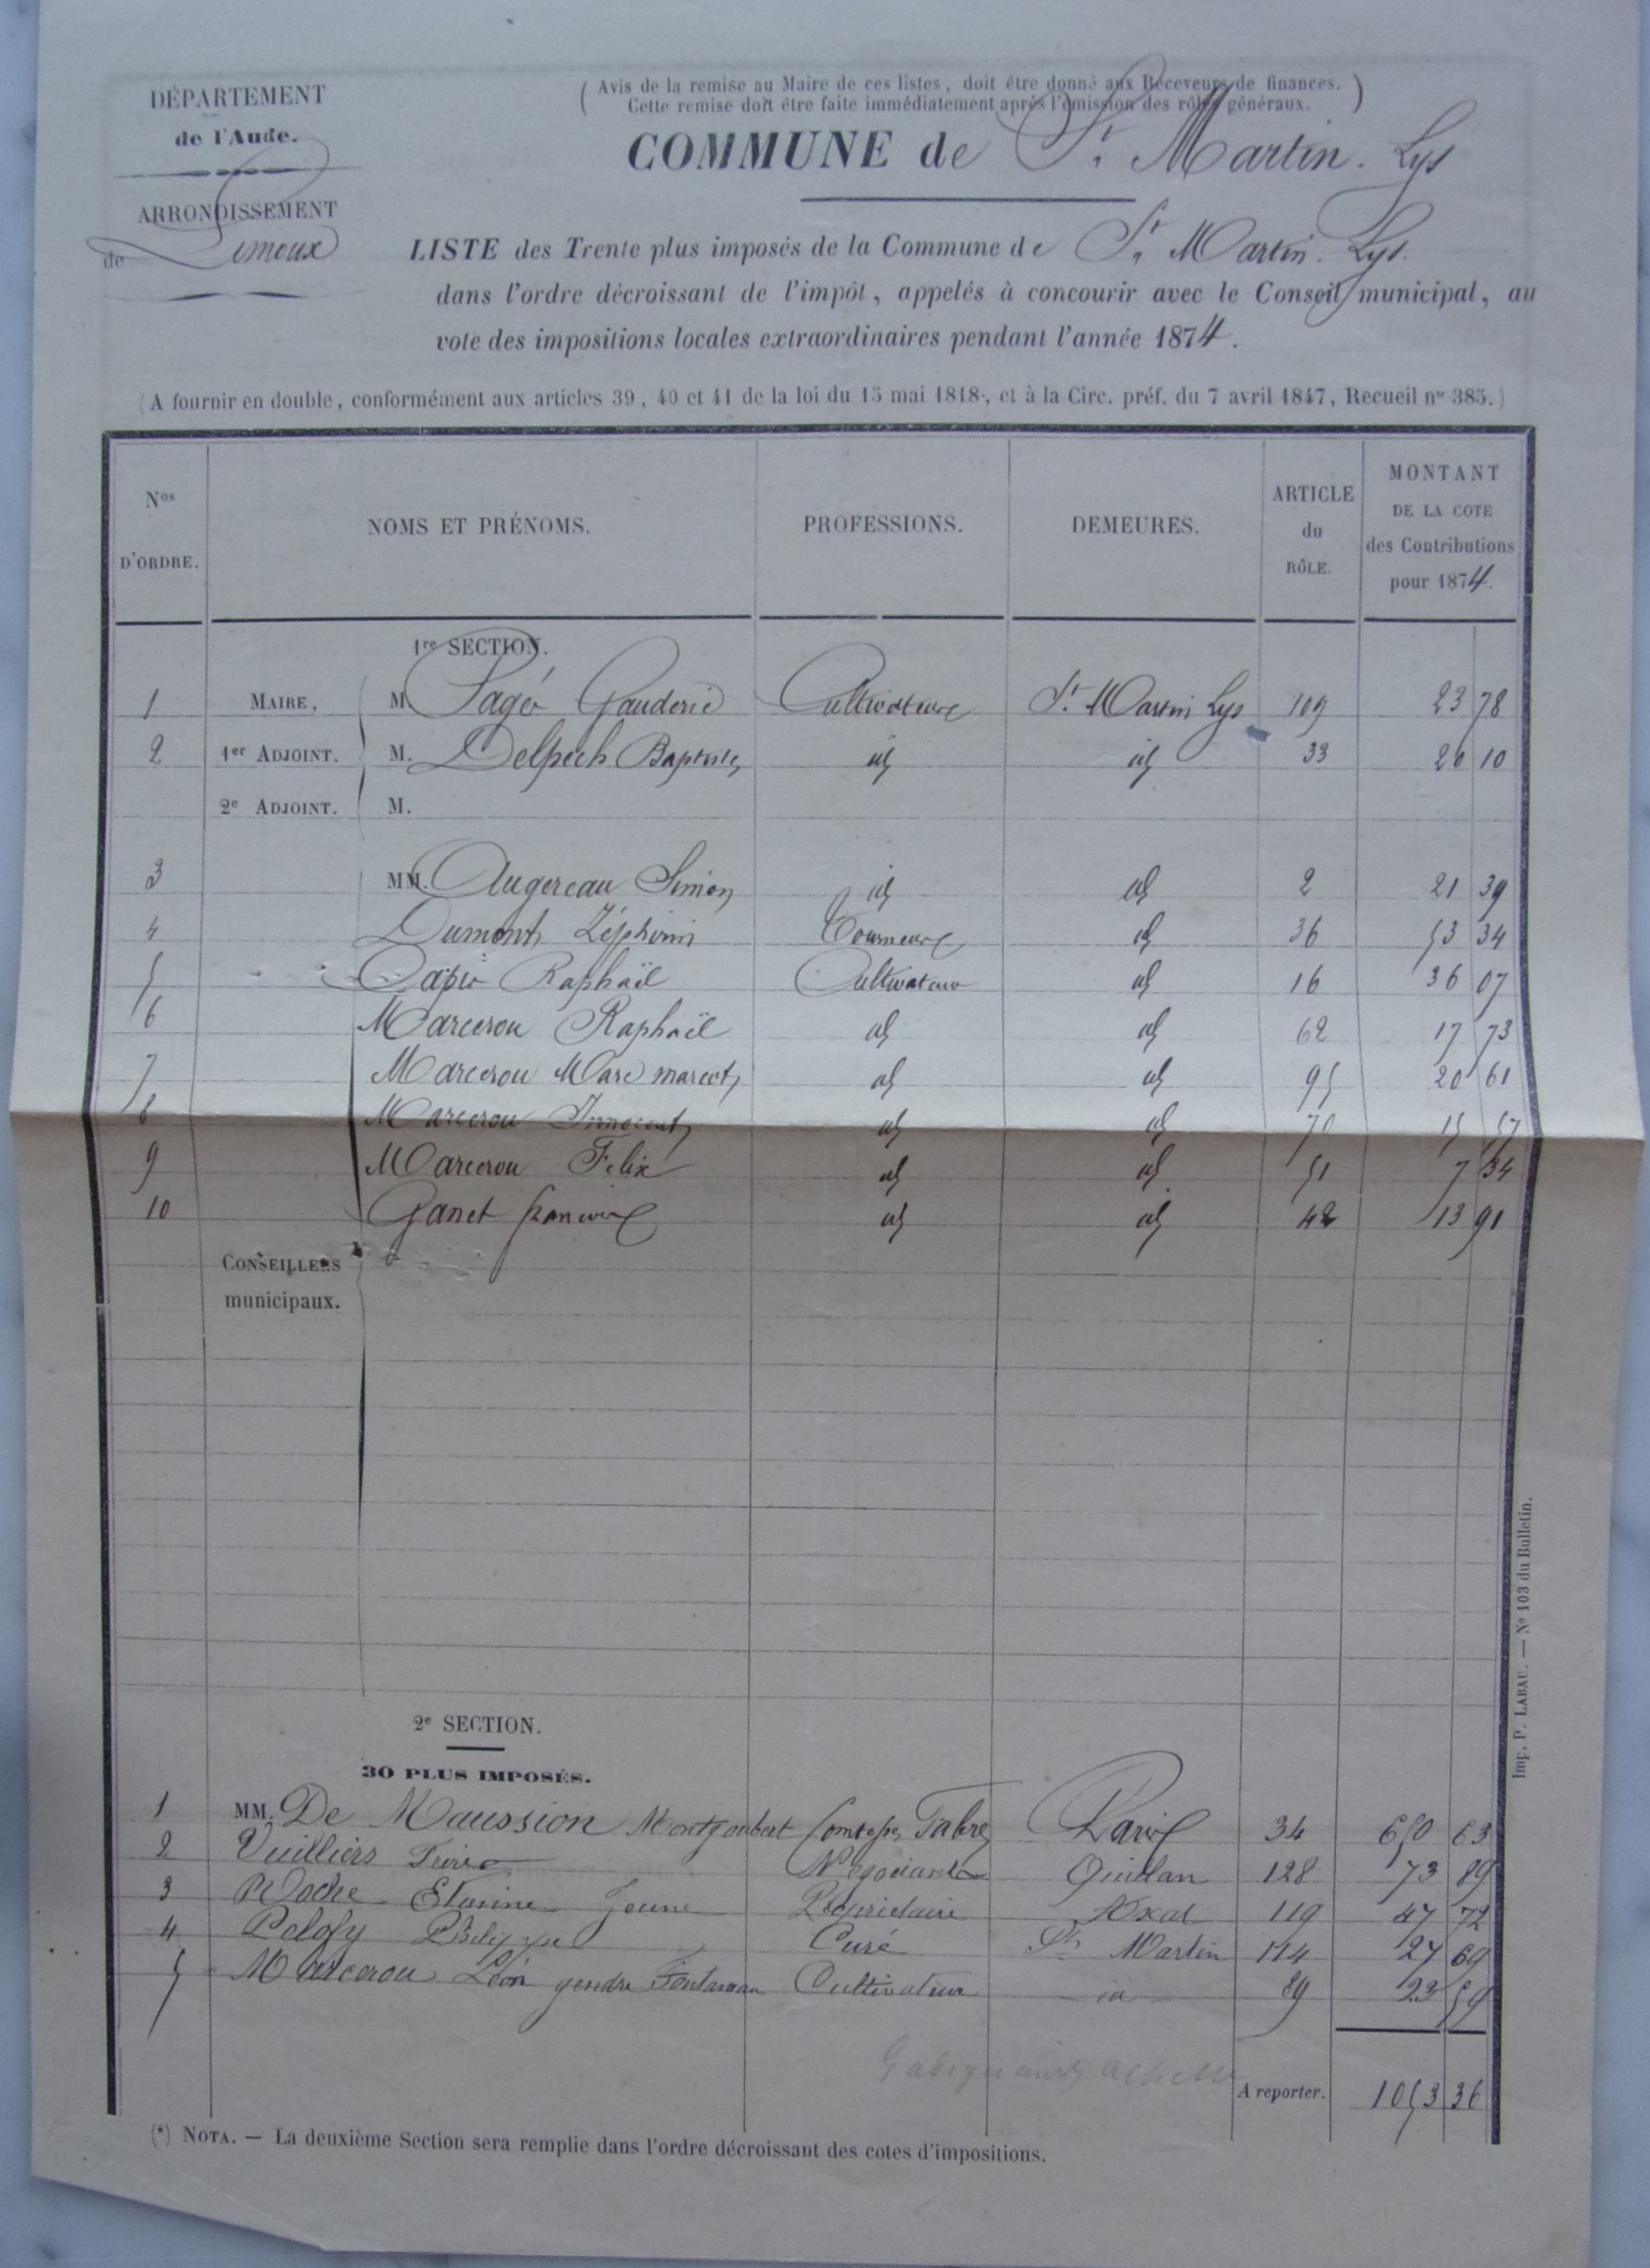 DÉPARTEMENT
de l'Aude.
ARRONDISSEMENT
de Limoux
( Avis de la remise au Maire de ces listes, doit être donné aux Receveurs de finances. )
Cette remise doit être faite immédiatement après l'émission des rôles généraux.
COMMUNE de St. Martin. Lys
LISTE des Trente plus imposés de la Commune de St. Martin. Lys.
dans l'ordre décroissant de l'impôt, appelés à concourir avec le Conseil municipal, au
vote des impositions locales extraordinaires pendant l'année 1874.
(A fournir en double, conformément aux articles 39, 40 et 41 de la loi du 15 mai 1818, et à la Circ. préf. du 7 avril 1847, Recueil no 385.)
Nos D'ORDRE. NOMS ET PRÉNOMS. PROFESSIONS. DEMEURES. ARTICLE du RÔLE. MONTANT DE LA COTE des Contributions pour 1874.
1re SECTION.
1 MAIRE, M. Pagés Gauderic Cultivateur St. Martin Lys 109 23 78
2 1er ADJOINT. M. Delpech Baptiste id id 33 20 10
2e ADJOINT. M.
3 MM. Augereau Simon id id 2 21 39
4 Dumont Zéphirin Tourneur id 36 53 34
5 Raphaël Cultivateur id 16 36 07
6 Marcerou Raphaël id id 62 17 73
7 Marcerou Marc id id 95 20 61
8 Marcerou Innocent id id 70 15 57
9 Marcerou Felix id id 51 7 34
10 Ganet id id 42 13 91
CONSEILLERS
municipaux.
2e SECTION.
30 PLUS IMPOSÉS.
1 MM. De Maussion Montgoubert Fabre Paris 34 650 63
2 Vuilliers Négociants Quillan 128 73 89
3 Roche Etienne Jeune Propriétaire Axat 119 47 72
4 Pelofy Philippe Curé St. Martin 114 27 69
5 Marcerou Léon gendre Cultivateur id 89 23 59
A reporter. 1053 36
(*) NOTA. — La deuxième Section sera remplie dans l'ordre décroissant des cotes d'impositions.
Imp. P. LABAU. — No 103 du Bulletin.